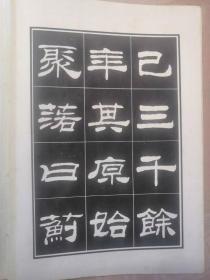 已三千餘
年其原始
聚落曰薊